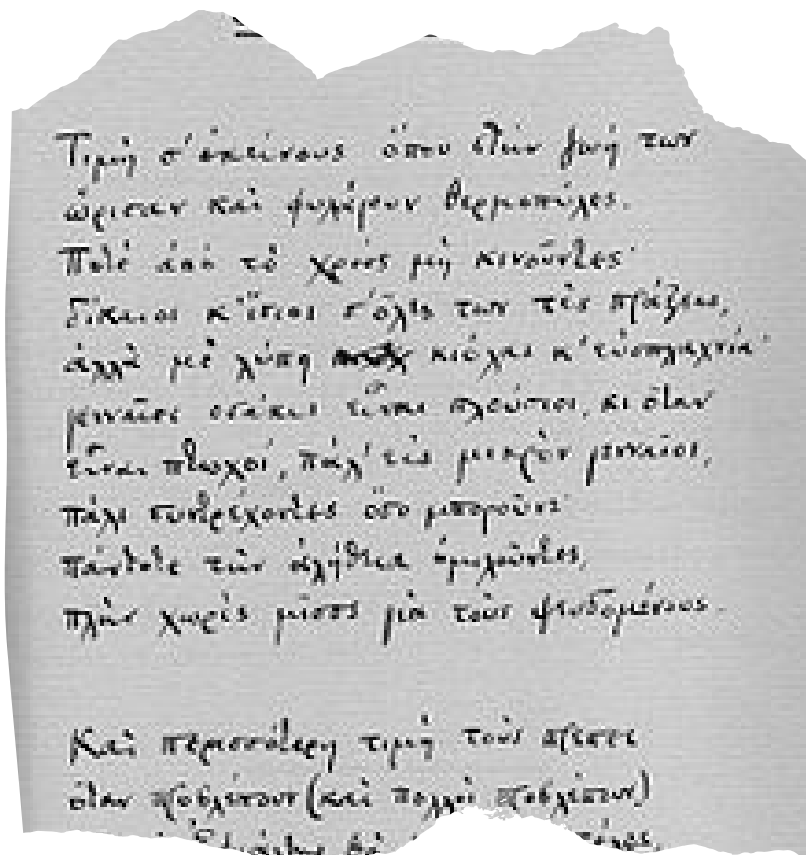 Τιμὴ σ' ἐκείνους ὅπου στὴν ζωή των
ὥρισαν καὶ φυλάγουν Θερμοπύλες.
Ποτὲ ἀπὸ τὸ χρέος μὴ κινοῦντες·
δίκαιοι κ' ἴσιοι σ' ὅλες των τὲς πράξεις,
ἀλλὰ μὲ λύπη κιόλας κ' εὐσπλαχνία·
γενναῖοι ὁσάκις εἶναι πλούσιοι, κι ὅταν
εἶναι πτωχοί, πάλ' εἰς μικρὸν γενναῖοι,
πάλι συντρέχοντες ὅσο μποροῦνε·
πάντοτε τὴν ἀλήθεια ὁμιλοῦντες,
πλὴν χωρὶς μῖσος γιὰ τοὺς ψευδομένους.
Καὶ περισσότερη τιμὴ τοὺς πρέπει
ὅταν προβλέπουν (καὶ πολλοὶ προβλέπουν)
θὰ τέλος,